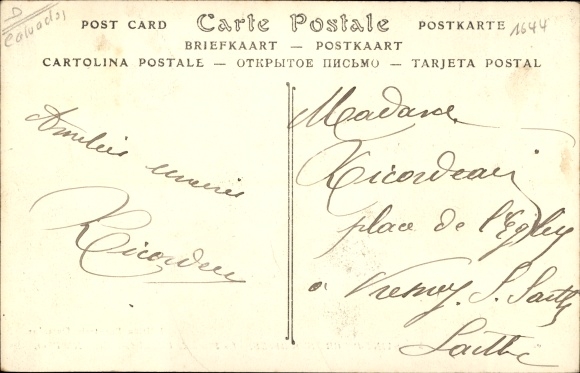 D
Calvados
1644
POST CARD Carte Postale POSTKARTE
BRIEFKAART — POSTKAART
CARTOLINA POSTALE — ОТКРЫТОЕ ПИСЬМО — TARJETA POSTAL
Amitiés
Ricordeau
Madame
Ricordeau
place de l'Eglise
à Fresnay S. Sarthe
Sarthe